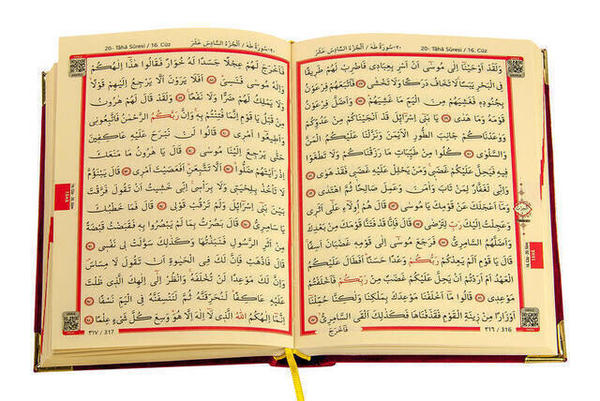 ٢٠- سُورَةُ طٰهٰ / اَلْجُزْءُ السَّادِسُ عَشَرَ 20- Tâhâ Sûresi / 16. Cüz
وَلَقَدْ اَوْحَيْنَٓا اِلٰى مُوسٰٓى اَنْ اَسْرِ بِعِبَادٖى فَاضْرِبْ لَهُمْ طَرٖيقًا
فِى الْبَحْرِ يَبَسًا لَا تَخَافُ دَرَكًا وَلَا تَخْشٰى ﴿٧٧﴾ فَاَتْبَعَهُمْ فِرْعَوْنُ
بِجُنُودِهٖ فَغَشِيَهُمْ مِنَ الْيَمِّ مَا غَشِيَهُمْ ﴿٧٨﴾ وَاَضَلَّ فِرْعَوْنُ
قَوْمَهُ وَمَا هَدٰى ﴿٧٩﴾ يَا بَنٖٓى اِسْرَٓائٖلَ قَدْ اَنْجَيْنَاكُمْ مِنْ عَدُوِّكُمْ
وَوٰعَدْنَاكُمْ جَانِبَ الطُّورِ الْاَيْمَنَ وَنَزَّلْنَا عَلَيْكُمُ الْمَنَّ
وَالسَّلْوٰى ﴿٨٠﴾ كُلُوا مِنْ طَيِّبَاتِ مَا رَزَقْنَاكُمْ وَلَا تَطْغَوْا
فٖيهِ فَيَحِلَّ عَلَيْكُمْ غَضَبٖى وَمَنْ يَحْلِلْ عَلَيْهِ غَضَبٖى فَقَدْ هَوٰى ﴿٨١﴾
وَاِنّٖى لَغَفَّارٌ لِمَنْ تَابَ وَاٰمَنَ وَعَمِلَ صَالِحًا ثُمَّ اهْتَدٰى ﴿٨٢﴾
وَمَٓا اَعْجَلَكَ عَنْ قَوْمِكَ يَا مُوسٰى ﴿٨٣﴾ قَالَ هُمْ اُولَٓاءِ عَلٰٓى اَثَرٖى
وَعَجِلْتُ اِلَيْكَ رَبِّ لِتَرْضٰى ﴿٨٤﴾ قَالَ فَاِنَّا قَدْ فَتَنَّا قَوْمَكَ مِنْ بَعْدِكَ
وَاَضَلَّهُمُ السَّامِرِىُّ ﴿٨٥﴾ فَرَجَعَ مُوسٰٓى اِلٰى قَوْمِهٖ غَضْبَانَ اَسِفًا
قَالَ يَا قَوْمِ اَلَمْ يَعِدْكُمْ رَبُّكُمْ وَعْدًا حَسَنًا اَفَطَالَ عَلَيْكُمُ
الْعَهْدُ اَمْ اَرَدْتُمْ اَنْ يَحِلَّ عَلَيْكُمْ غَضَبٌ مِنْ رَبِّكُمْ فَاَخْلَفْتُمْ
مَوْعِدٖى ﴿٨٦﴾ قَالُوا مَٓا اَخْلَفْنَا مَوْعِدَكَ بِمَلْكِنَا وَلٰكِنَّا حُمِّلْنَٓا
اَوْزَارًا مِنْ زٖينَةِ الْقَوْمِ فَقَذَفْنَاهَا فَكَذٰلِكَ اَلْقَى السَّامِرِىُّ ﴿٨٧﴾
فَاَخْرَجَ
٣١٦ / 316
20- Tâhâ Sûresi / 16. Cüz ٢٠- سُورَةُ طٰهٰ / اَلْجُزْءُ السَّادِسُ عَشَرَ
فَاَخْرَجَ لَهُمْ عِجْلًا جَسَدًا لَهُ خُوَارٌ فَقَالُوا هٰذَٓا اِلٰهُكُمْ
وَاِلٰهُ مُوسٰى فَنَسِىَ ﴿٨٨﴾ اَفَلَا يَرَوْنَ اَلَّا يَرْجِعُ اِلَيْهِمْ قَوْلًا
وَلَا يَمْلِكُ لَهُمْ ضَرًّا وَلَا نَفْعًا ﴿٨٩﴾ وَلَقَدْ قَالَ لَهُمْ هٰرُونُ
مِنْ قَبْلُ يَا قَوْمِ اِنَّمَا فُتِنْتُمْ بِهٖ وَاِنَّ رَبَّكُمُ الرَّحْمٰنُ فَاتَّبِعُونٖى
وَاَطٖيعُٓوا اَمْرٖى ﴿٩٠﴾ قَالُوا لَنْ نَبْرَحَ عَلَيْهِ عَاكِفٖينَ
حَتّٰى يَرْجِعَ اِلَيْنَا مُوسٰى ﴿٩١﴾ قَالَ يَا هٰرُونُ مَا مَنَعَكَ
اِذْ رَاَيْتَهُمْ ضَلُّوا ﴿٩٢﴾ اَلَّا تَتَّبِعَنِ اَفَعَصَيْتَ اَمْرٖى ﴿٩٣﴾ قَالَ يَبْنَؤُمَّ
لَا تَأْخُذْ بِلِحْيَتٖى وَلَا بِرَأْسٖى اِنّٖى خَشٖيتُ اَنْ تَقُولَ فَرَّقْتَ
بَيْنَ بَنٖٓى اِسْرَٓائٖلَ وَلَمْ تَرْقُبْ قَوْلٖى ﴿٩٤﴾ قَالَ فَمَا خَطْبُكَ
يَا سَامِرِىُّ ﴿٩٥﴾ قَالَ بَصُرْتُ بِمَا لَمْ يَبْصُرُوا بِهٖ فَقَبَضْتُ قَبْضَةً
مِنْ اَثَرِ الرَّسُولِ فَنَبَذْتُهَا وَكَذٰلِكَ سَوَّلَتْ لٖى نَفْسٖى ﴿٩٦﴾
قَالَ فَاذْهَبْ فَاِنَّ لَكَ فِى الْحَيٰوةِ اَنْ تَقُولَ لَا مِسَاسَ
وَاِنَّ لَكَ مَوْعِدًا لَنْ تُخْلَفَهُ وَانْظُرْ اِلٰٓى اِلٰهِكَ الَّذٖى ظَلْتَ
عَلَيْهِ عَاكِفًا لَنُحَرِّقَنَّهُ ثُمَّ لَنَنْسِفَنَّهُ فِى الْيَمِّ نَسْفًا ﴿٩٧﴾
اِنَّمَٓا اِلٰهُكُمُ اللّٰهُ الَّذٖى لَٓا اِلٰهَ اِلَّا هُوَ وَسِعَ كُلَّ شَىْءٍ عِلْمًا ﴿٩٨﴾
٣١٧ / 317